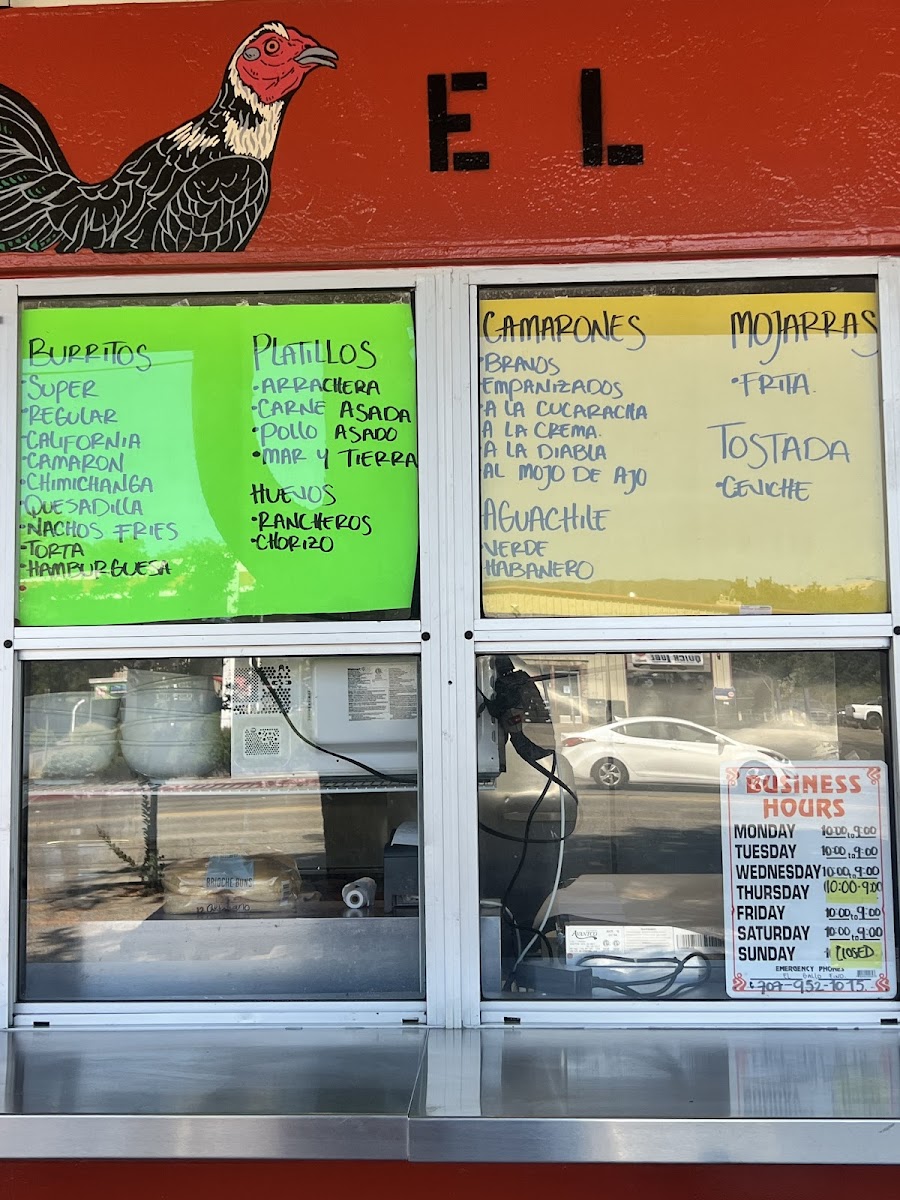 EL
BURRITOS
•SUPER
•REGULAR
•CALIFORNIA
•CAMARON
•CHIMICHANGA
•QUESADILLA
•NACHOS FRIES
•TORTA
•HAMBURGUESA
PLATILLOS
•ARRACHERA
•CARNE ASADA
•POLLO ASADO
•MAR Y TIERRA
HUEVOS
•RANCHEROS
•CHORIZO
CAMARONES
•BRAVOS
•EMPANIZADOS
•A LA CUCARACHA
•A LA CREMA.
•A LA DIABLA
•AL MOJO DE AJO
AGUACHILE
•VERDE
•HABANERO
MOJARRAS
•FRITA.
TOSTADA
•CEVICHE
QUICK LUBE
BRIOCHE BUNS
AVANTCO
BUSINESS
HOURS
MONDAY 10:00 to 9:00
TUESDAY 10:00 to 9:00
WEDNESDAY 10:00 to 9:00
THURSDAY 10:00-9:00
FRIDAY 10:00 to 9:00
SATURDAY 10:00 to 9:00
SUNDAY CLOSED
EMERGENCY PHONES
EL GALLO FINO
707-952-7075